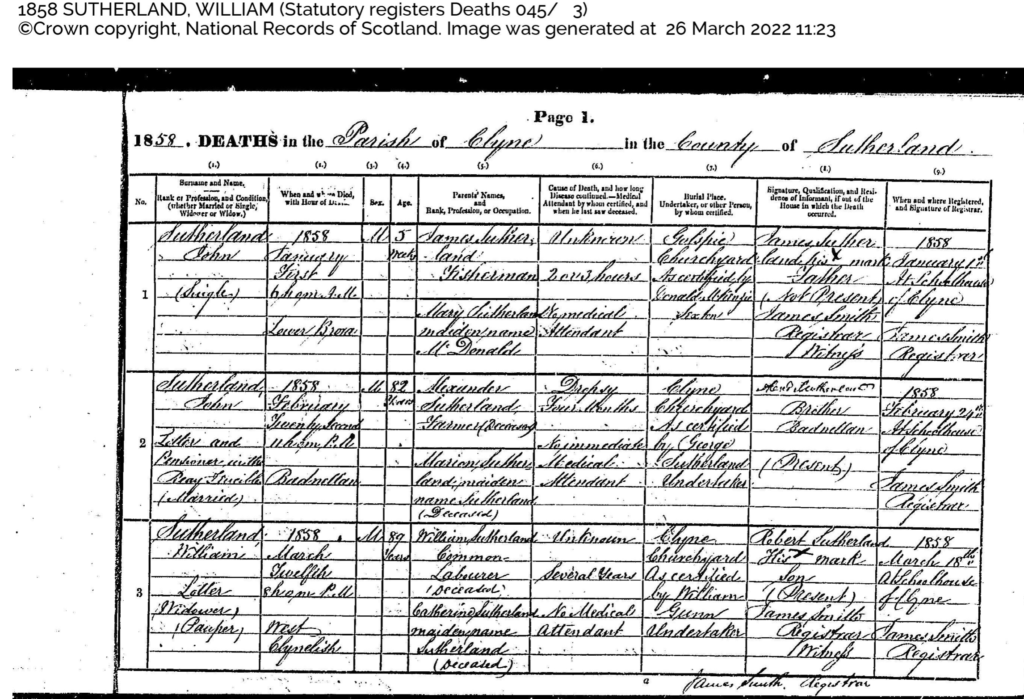 1858 SUTHERLAND, WILLIAM (Statutory registers Deaths 045/ 3)
©Crown copyright, National Records of Scotland. Image was generated at 26 March 2022 11:23
Page 1.
1858. DEATHS in the Parish of Clyne in the County of Sutherland
(1.) (2.) (3.) (4.) (5.) (6.) (7.) (8.) (9.)
No.
Surname and Name,
Rank or Profession, and Condition,
(whether Married or Single,
Widower or Widow.)
When and where Died,
with Hour of Death.
Sex.
Age.
Parents' Names,
and
Rank, Profession, or Occupation.
Cause of Death, and how long
Disease continued.—Medical
Attendant by whom certified, and
when he last saw deceased.
Burial Place.
Undertaker, or other Person,
by whom certified.
Signature, Qualification, and Resi-
dence of Informant, if out of the
House in which the Death
occurred.
When and where Registered,
and Signature of Registrar.
1
Sutherland
John
(Single)
1858
January
First
6 h 0 m A.M.
Lower Brora
M
5
weeks
James Suther
land
Fisherman
Mary Sutherland
maiden name
McDonald
Unknown
2 or 3 hours
No medical
Attendant
Golspie
Churchyard
As certified by
Donald McKenzie
Sexton
James Suther
land his x mark
Father
(Not Present)
James Smith
Registrar
Witness
1858
January 1st
At Schoolhouse
of Clyne
James Smith
Registrar
2
Sutherland,
John
Lotter and
Pensioner with
Reay Fencibles
(Married)
1858
February
Twenty Second
11 h 0 m P.M.
Badnellan
M
82
Years
Alexander
Sutherland
Farmer (Deceased)
Marion Suther
land, maiden
name Sutherland
(Deceased)
Dropsy
Four Months
No immediate
Medical
Attendant
Clyne
Churchyard
As certified
by George
Sutherland
Undertaker
Sutherland
Brother
Badnellan
(Present)
1858
February 24th
At Schoolhouse
of Clyne
James Smith
Registrar
3
Sutherland
William
Lotter
(Widower)
(Pauper)
1858.
March
Twelfth
8 h 0 m P.M
West
Clynelish
M
89
Years
William Sutherland
Common
Labourer
(Deceased)
Catherine Sutherland
maiden name
Sutherland
(Deceased)
Unknown
Several Years
No Medical
Attendant
Clyne
Churchyard
As certified
by William
Gunn
Undertaker
Robert Sutherland
His x mark
Son
(Present)
James Smith
Registrar
Witness
1858
March 18th
At Schoolhouse
of Clyne
James Smith
Registrar
James Smith. Registrar